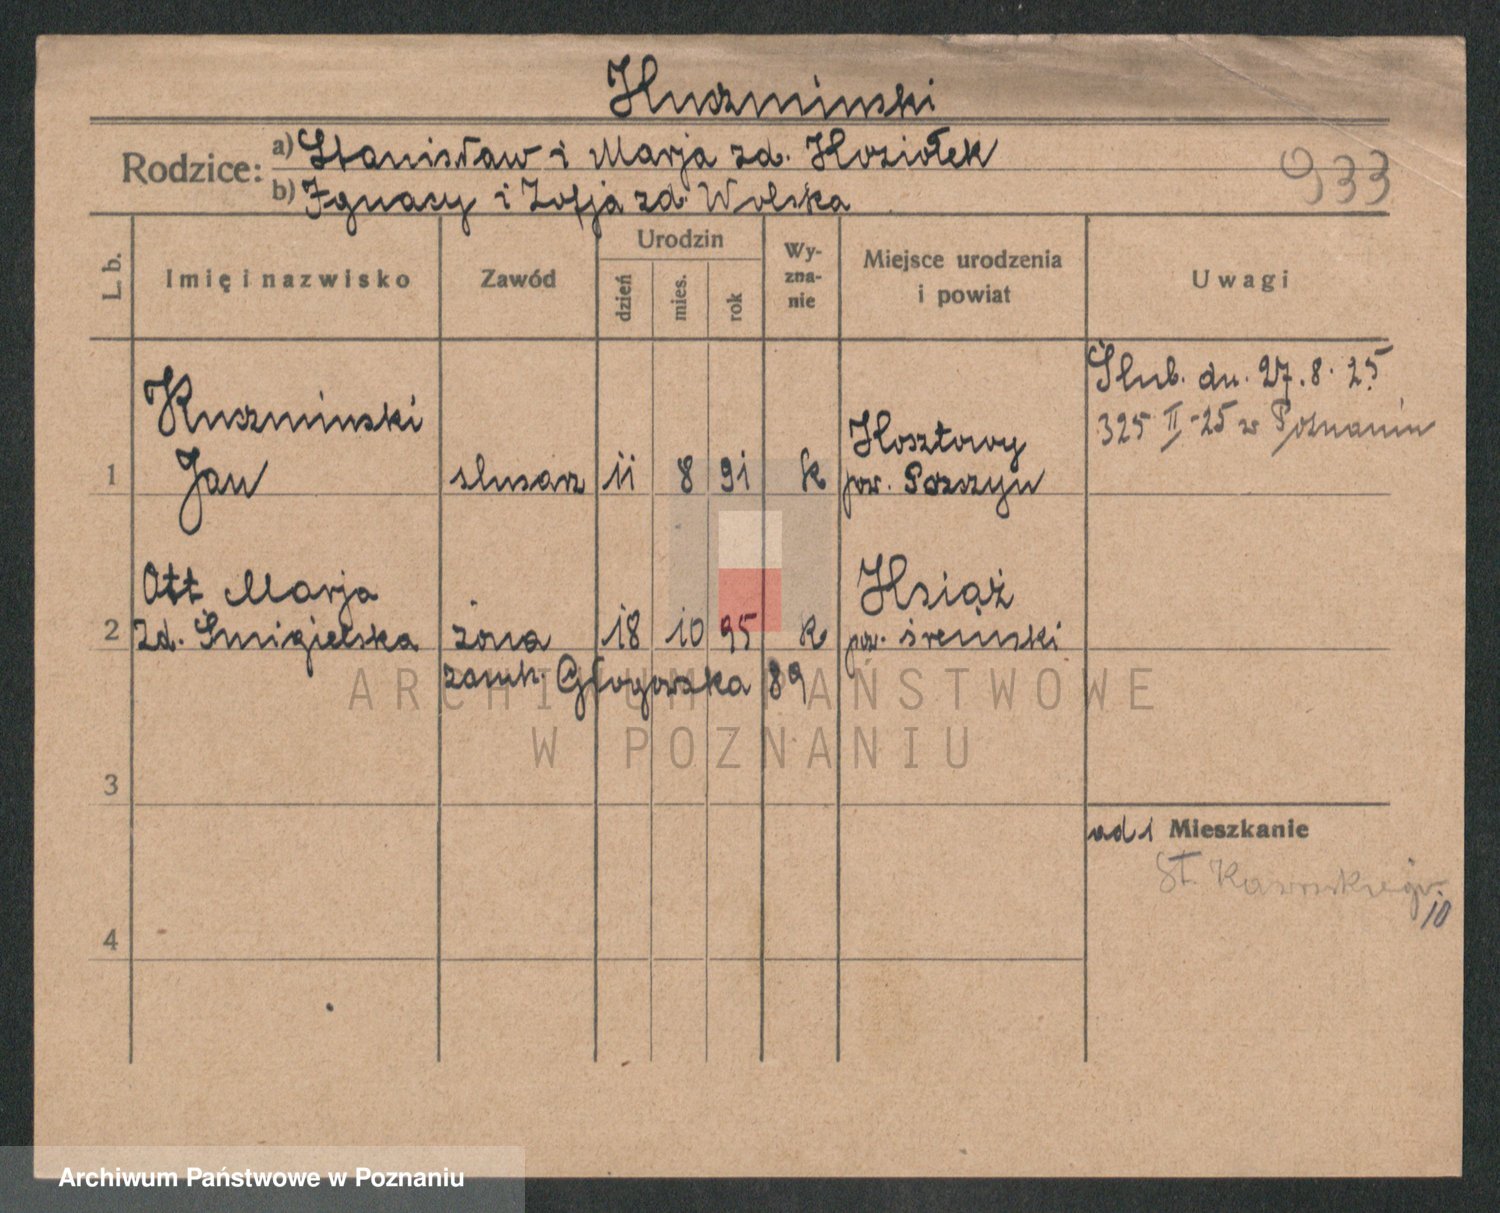 Kuszminski
Rodzice: a) Stanisław i Marja zd. Koziołek
b) Ignacy i Zofja zd. Wolska
933
L. b. Imię i nazwisko Zawód Urodzin dzień mies. rok Wyznanie Miejsce urodzenia i powiat Uwagi
Ślub. dn. 27.8.25
325 II-25 w Poznaniu
Kuszminski
1 Jan slusarz 11 8 91 k Kosztowy
pow.
Ott Marja Książ
2 zd. Śmigielska żona 18 10 95 k pow. śremski
zamk. Głogowska 89
ARCHIWUM PAŃSTWOWE
W POZNANIU
3
ad 1 Mieszkanie
St.
10
4
Archiwum Państwowe w Poznaniu